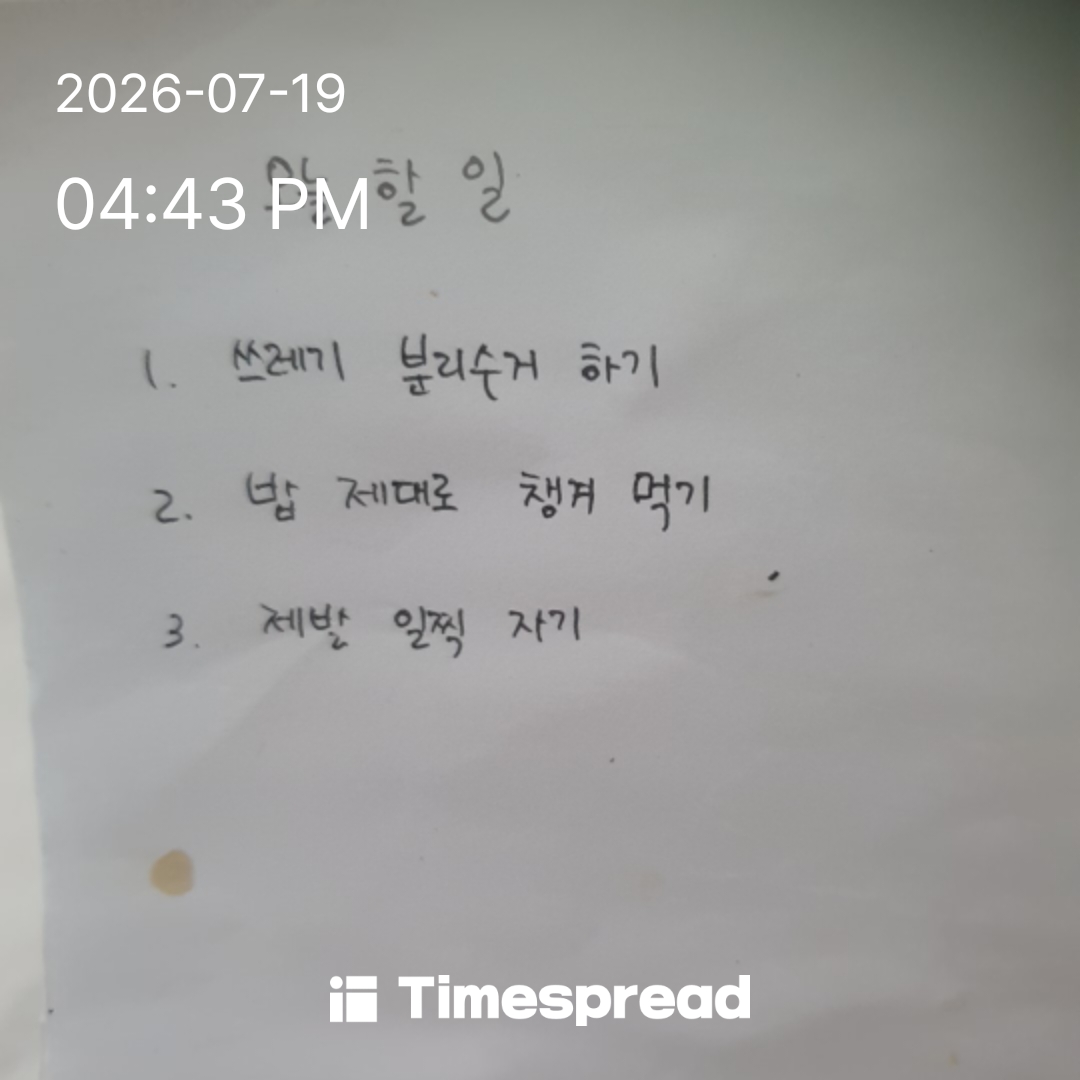 2026-07-19
04:43 PM
오늘 할 일
1. 쓰레기 분리수거 하기
2. 밥 제대로 챙겨 먹기
3. 제발 일찍 자기
Timespread